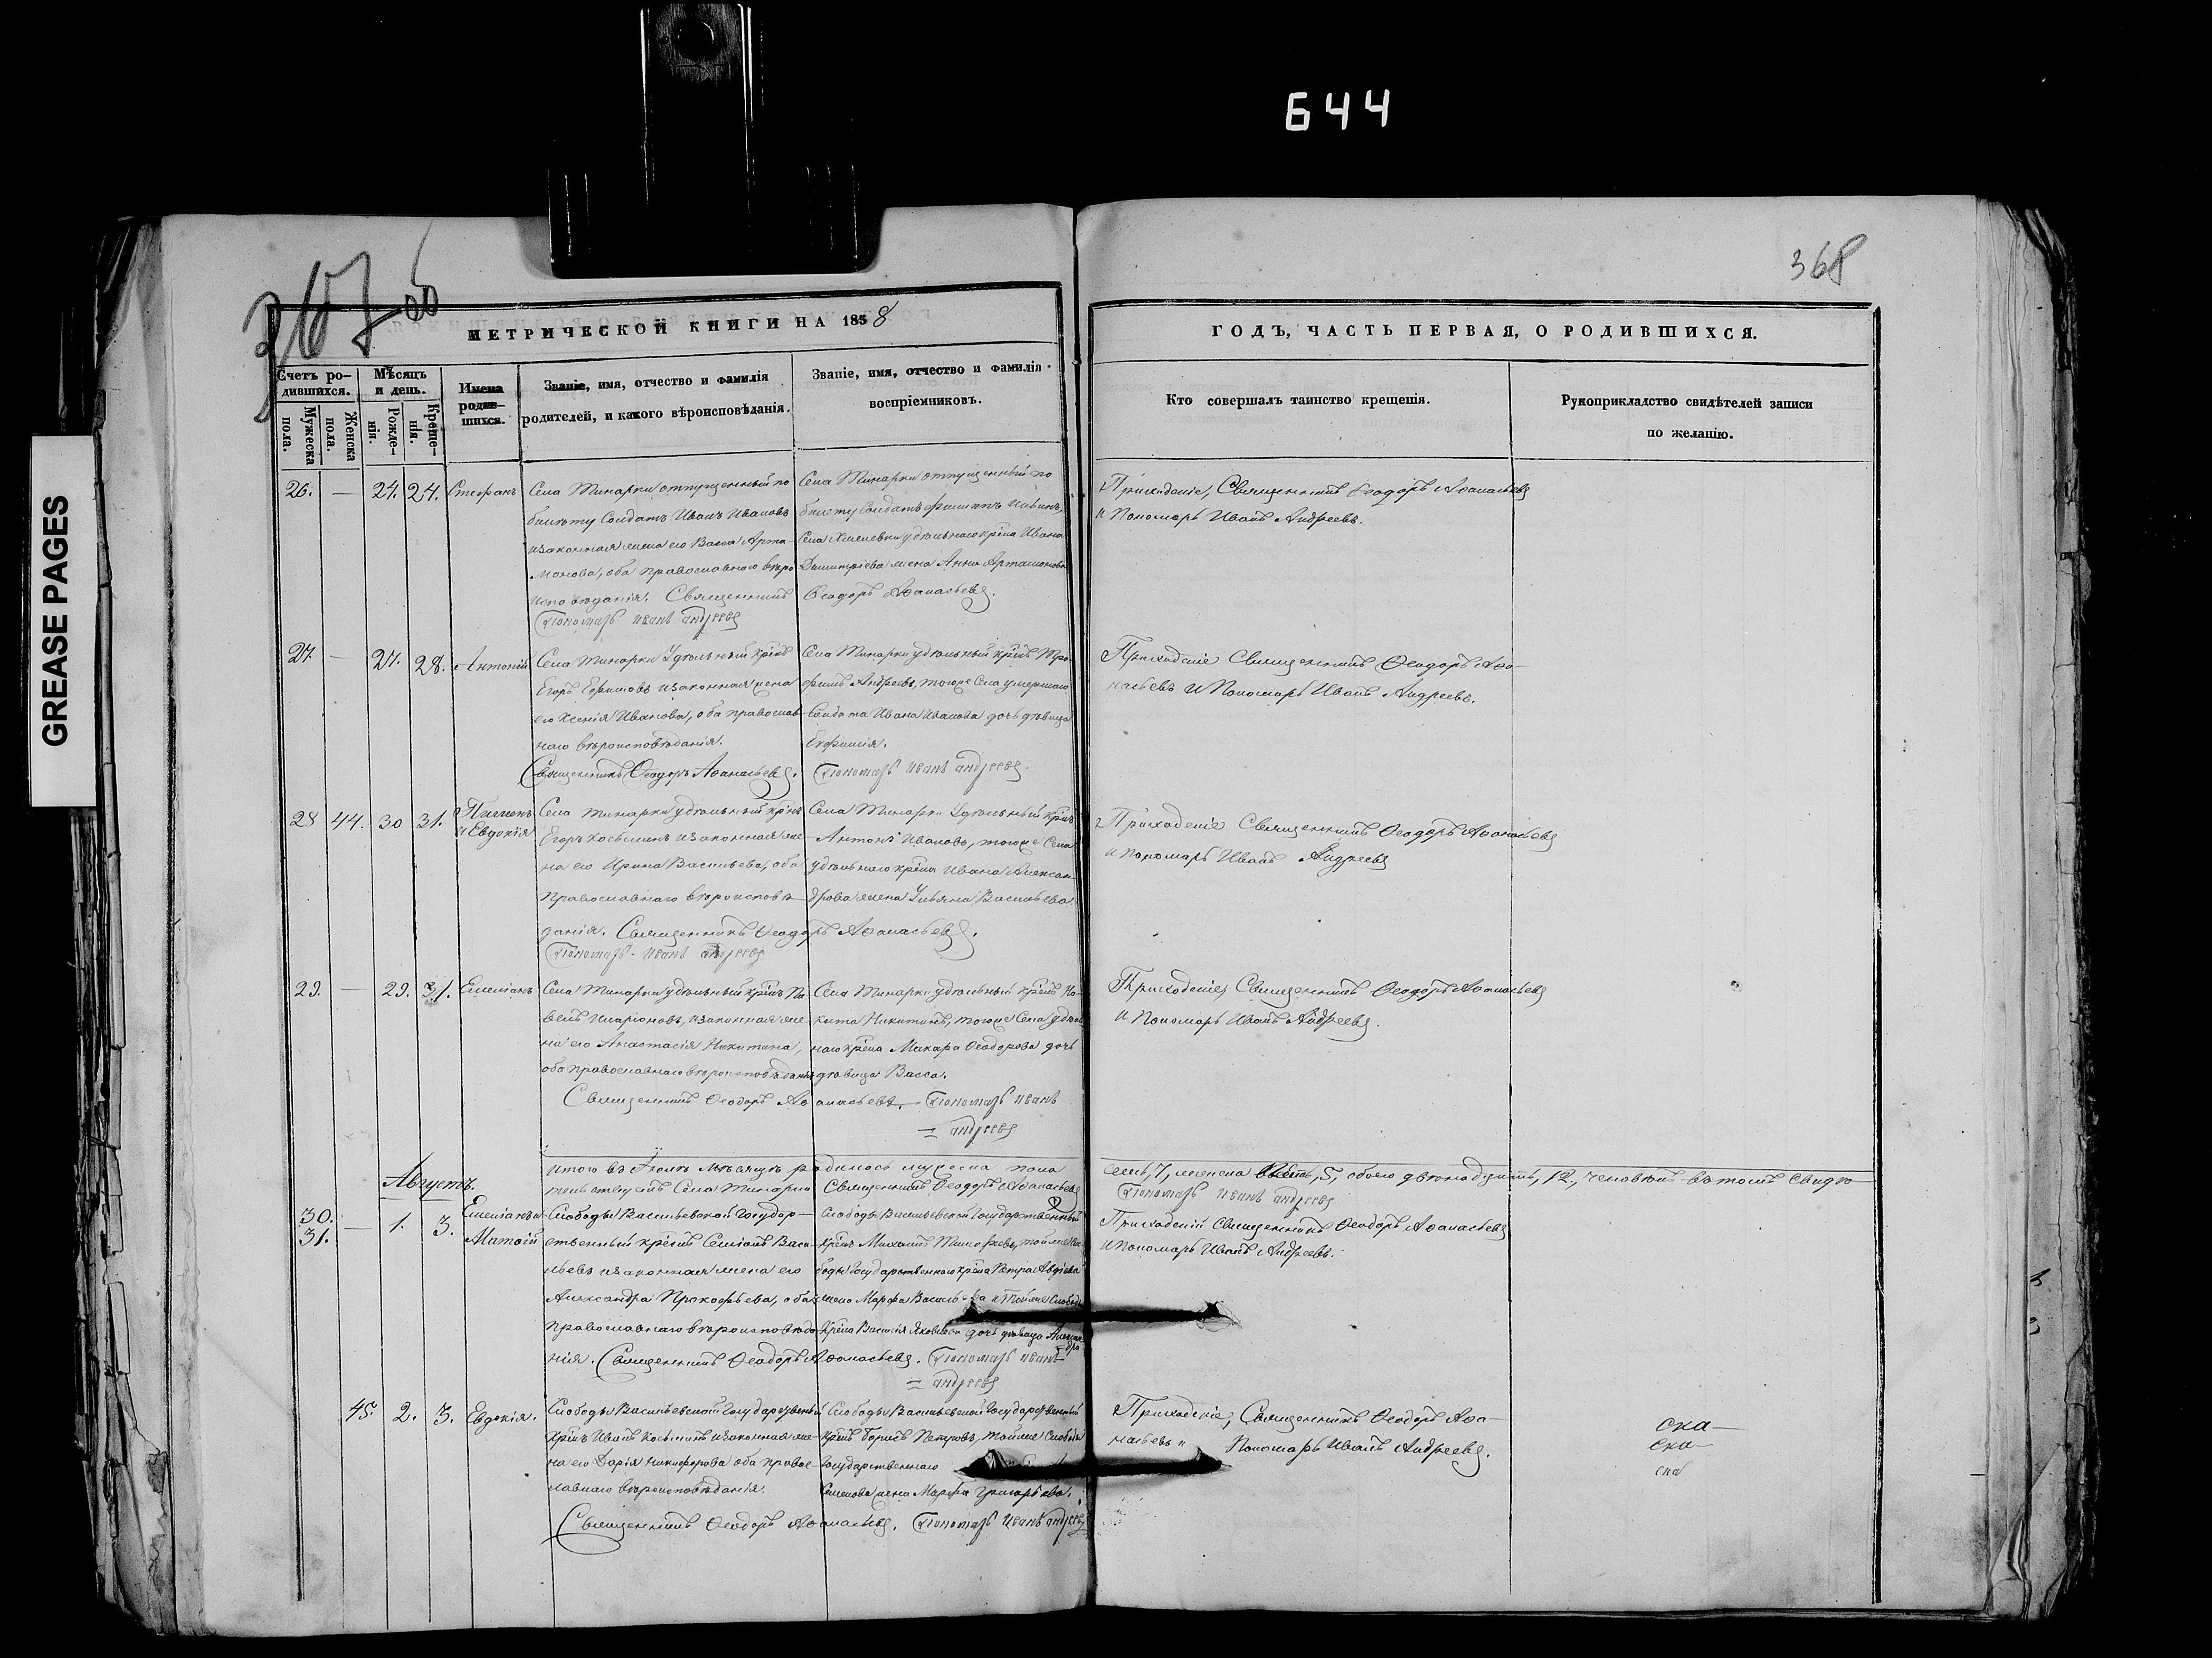 644
GREASE PAGES
368
МЕТРИЧЕСКОЙ КНИГИ НА 1858
ГОДЪ, ЧАСТЬ ПЕРВАЯ, О РОДИВШИХСЯ.
Счетъ ро-
дившихся.
Мѣсяцъ
и день.
Имена
родив-
шихся.
Званіе, имя, отчество и фамилія
родителей, и какого вѣроисповѣданія.
Званіе, имя, отчество и фамилія
воспріемниковъ.
Кто совершалъ таинство крещенія.
Рукоприкладство свидѣтелей записи
по желанію.
Мужеска
пола.
Женска
пола.
Рожде-
нія.
Креще-
нія.
26. — 24. 24. Стефанъ
Села Тинарки отпущенный по
билету Солдатъ Иванъ Ивановъ
изаконная жена его Васса Арта-
монова, оба православнаго вѣро
исповѣданія. Священникъ Ѳеодоръ Аѳанасьевъ.
Пономарь Иванъ Андреевъ
Села Тинарки отпущенный по
билету Солдатъ Филиппъ
Села удѣльнаго крѣна Ивана
Димитріева жена Анна Артамонова
Приходскіе, Священникъ Ѳеодоръ Аѳанасьевъ
и Пономарь Иванъ Андреевъ.
27. — 27. 28. Антоній
Села Тинарки Удѣльный крѣнъ
Егоръ Ефимовъ изаконная жена
его Ксенія Иванова, оба православ-
наго вѣроисповѣданія.
Священникъ Ѳеодоръ Аѳанасьевъ. Пономарь Иванъ Андреевъ.
Села Тинарки удѣльный крѣнъ Тро-
фимъ Андреевъ, тогоже Села умершаго
Солдата Ивана Иванова дочь дѣвица
Евфимія.
Приходскіе Священникъ Ѳеодоръ Аѳа-
насьевъ и Пономарь Иванъ Андреевъ.
28 44. 30 31. Пименъ
и Евдокія
Села Тинарки удѣльный крѣнъ
Егоръ Косьминъ изаконная же-
на его Ирина Васильева, оба
православнаго вѣроисповѣ-
данія. Священникъ Ѳеодоръ Аѳанасьевъ.
Пономарь Иванъ Андреевъ
Села Тинарки Удѣльный крѣнъ
Антонъ Ивановъ, тогоже Села
удѣльнаго крѣна Ивана Алексан-
дрова жена Ульяна Васильева.
Приходскіе Священникъ Ѳеодоръ Аѳанасьевъ
и Пономарь Иванъ Андреевъ
29. — 29. 31. Емеліанъ
Села Тинарки удѣльный крѣнъ Па-
велъ Иларіоновъ, изаконная же-
на его Анастасія Никитина,
оба православнаго вѣроисповѣданія
Священникъ Ѳеодоръ Аѳанасьевъ. Пономарь Иванъ
Андреевъ
Села Тинарки удѣльный крѣнъ Ни-
кита Никитинъ, тогоже Села удѣль
наго крѣна Макара Ѳеодорова дочь
дѣвица Васса.
Приходскіе, Священникъ Ѳеодоръ Аѳанасьевъ
и Пономарь Иванъ Андреевъ.
Итого въ Іюлѣ мѣсяцѣ родилось мужеска пола семь, 7, женска 5, обоего двѣнадцать, 12, человѣкъ въ томъ свидѣ-
Священникъ Ѳеодоръ Аѳанасьевъ
Пономарь Иванъ Андреевъ
Августъ.
30.
31. — 1. 3. Емеліанъ и
Матѳій
Слободы Васильевской Государ-
ственный крѣнъ Семіонъ Васи
льевъ изаконная жена его
Александра Прокофьева, оба
православнаго вѣроисповѣда
нія. Священникъ Ѳеодоръ Аѳанасьевъ. Пономарь Иванъ
Андреевъ
Слободы Васильевской Государственный
крѣнъ Михаилъ Тимофеевъ, тойже Сло-
боды Государственнаго крѣна Петра Авдіева
жена Марфа Васильева и тойже Слободы
крѣна Василія Яковлева дочь дѣвица Алексан-
дра
Приходскіе Священникъ Ѳеодоръ Аѳанасьевъ
и Пономарь Иванъ Андреевъ.
45. 2. 3. Евдокія.
Слободы Васильевской Государственный
крѣнъ Иванъ Косьминъ изаконная же-
на его Дарія Никифорова оба правос-
лавнаго вѣроисповѣданія.
Священникъ Ѳеодоръ Аѳанасьевъ. Пономарь Иванъ Андреевъ
Слободы Васильевской Государственный
крѣнъ Борисъ Петровъ, тойже Слободы
Государственнаго
Семенова жена Марфа Григорьева.
Приходскіе, Священникъ Ѳеодоръ Аѳа-
насьевъ и Пономарь Иванъ Андреевъ.
ска-
ска-
ска